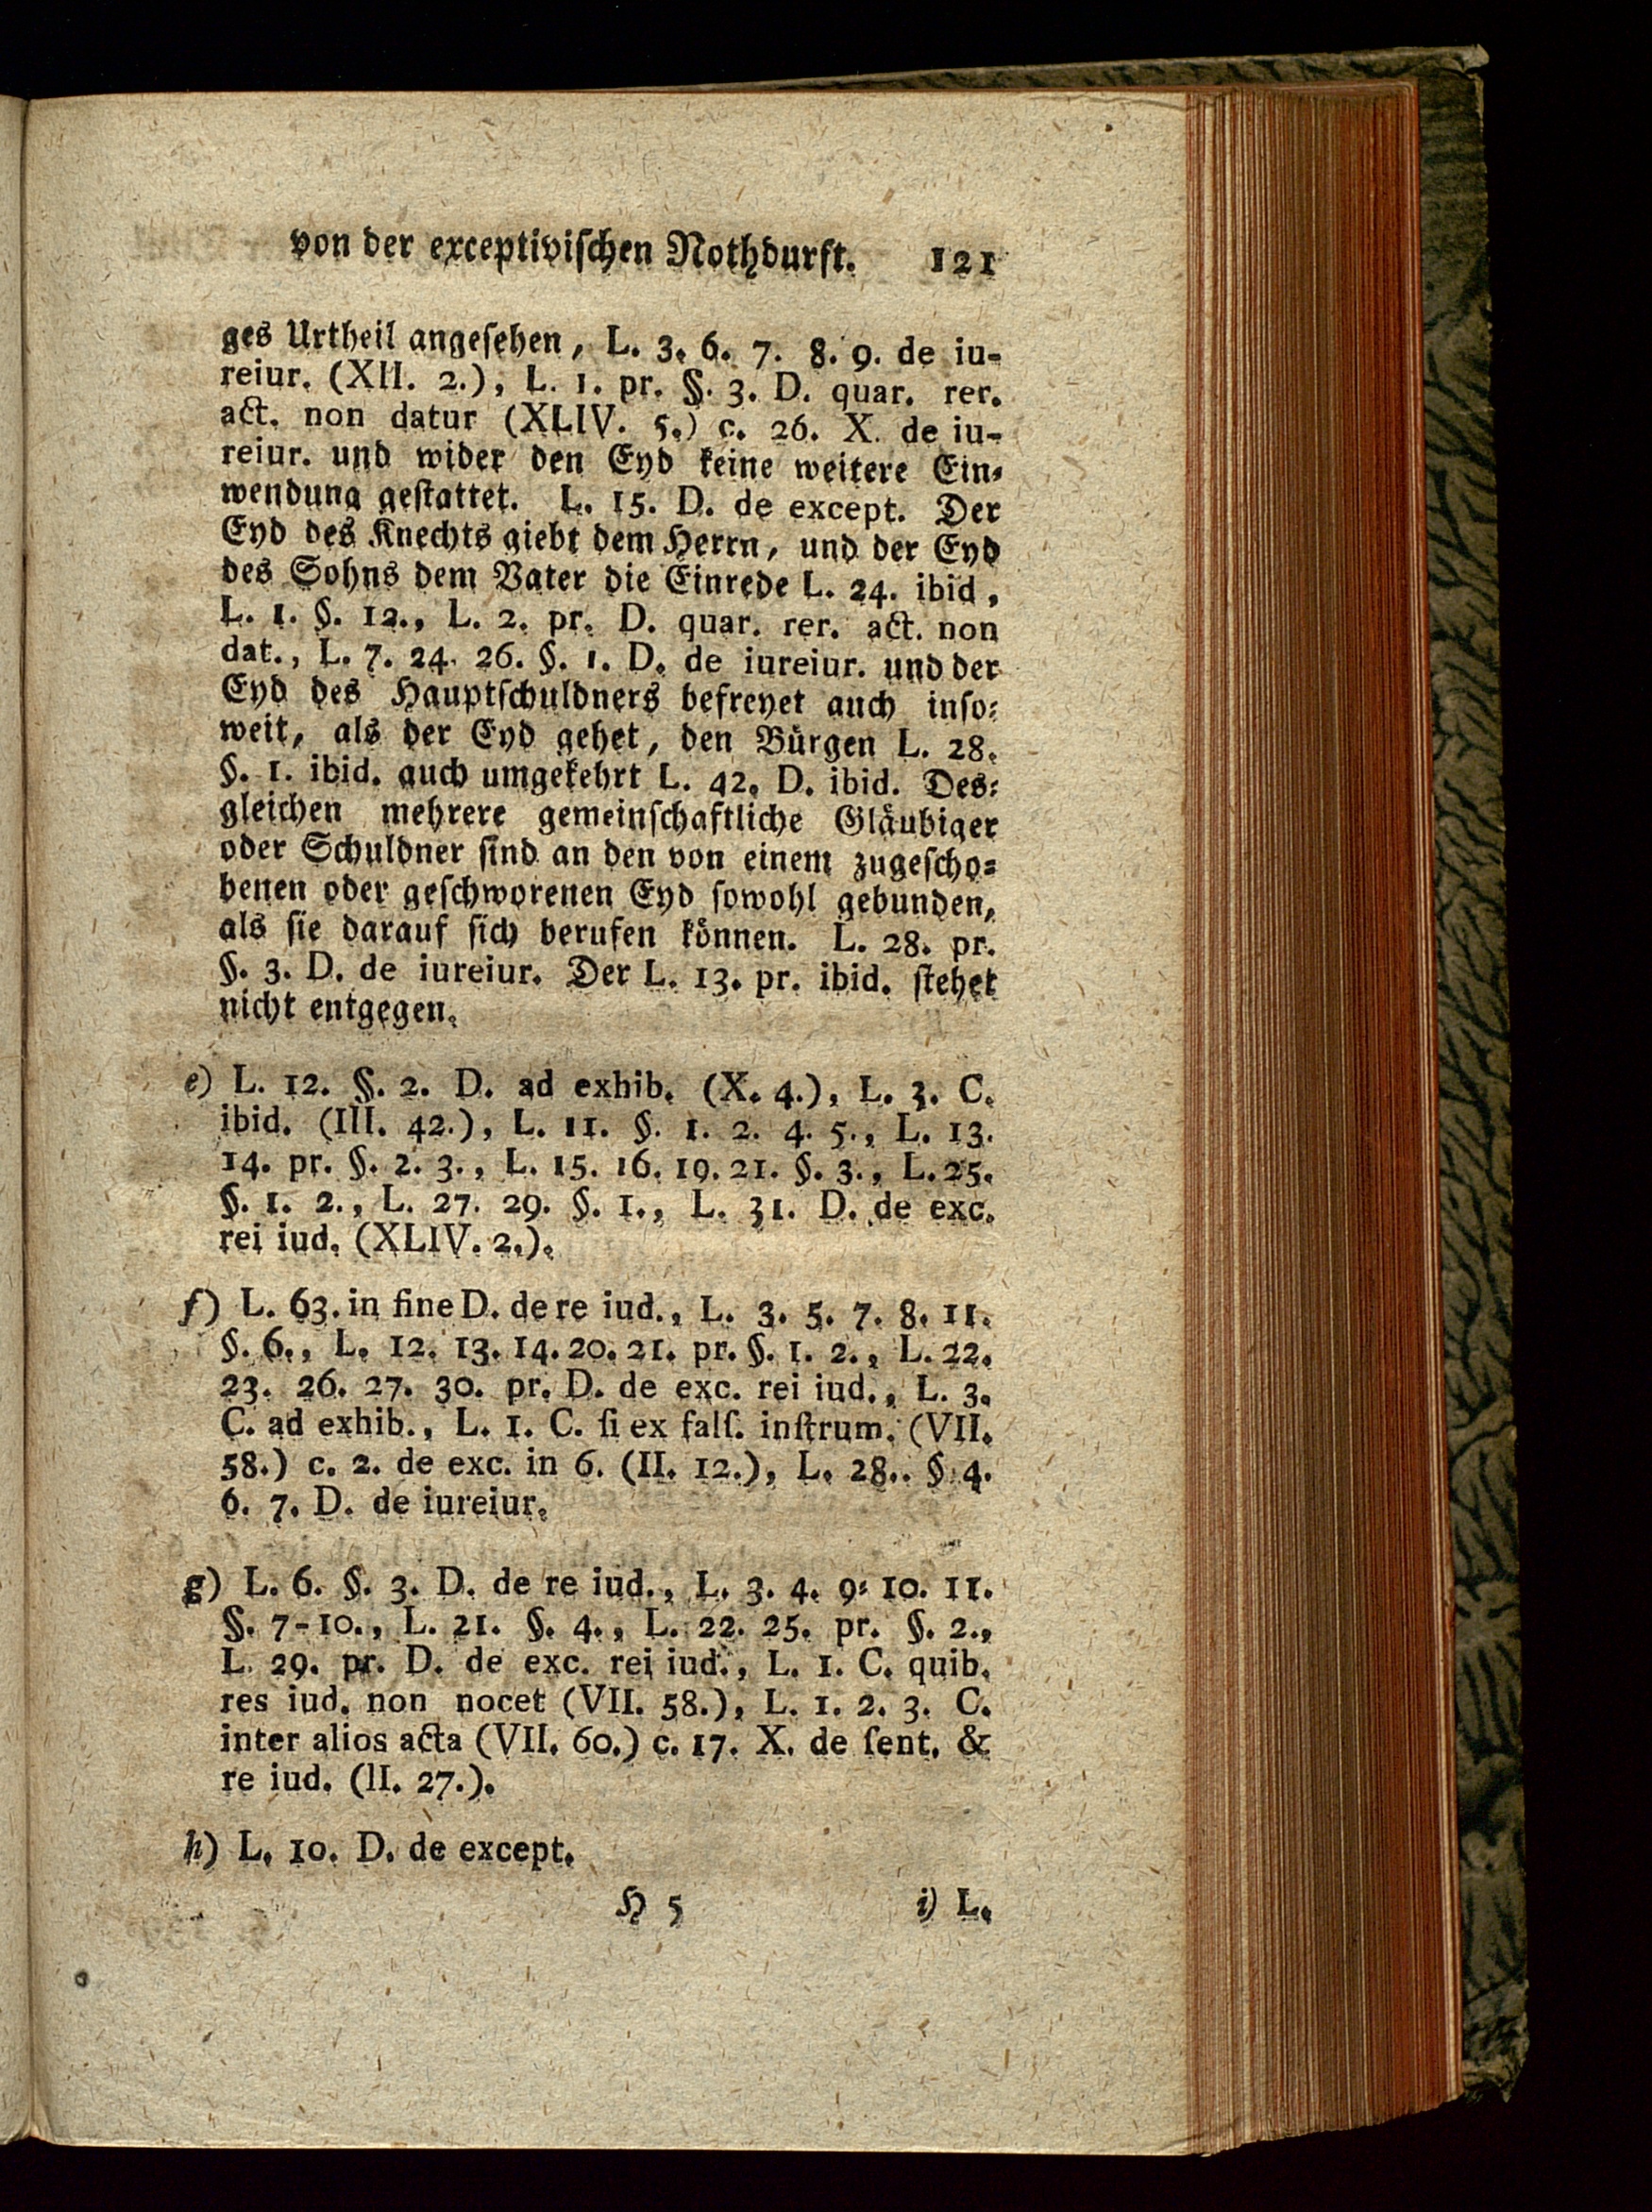 von der exceptivischen Nothdurft. 121
ges Urtheil angesehen, L. 3. 6. 7. 8. 9. de iu-
reiur. (XII. 2.), L. 1. pr. §. 3. D. quar. rer.
act. non datur (XLIV. 5.) c. 26. X. de iu-
reiur. und wider den Eyd keine weitere Ein-
wendung gestattet. L. 15. D. de except. Der
Eyd des Knechts giebt dem Herrn, und der Eyd
des Sohns dem Vater die Einrede L. 24. ibid,
L. 1. §. 12., L. 2. pr. D. quar. rer. act. non
dat., L. 7. 24. 26. §. 1. D. de iureiur. und der
Eyd des Hauptschuldners befreyet auch inso-
weit, als der Eyd gehet, den Bürgen L. 28.
§. 1. ibid. auch umgekehrt L. 42. D. ibid. Des-
gleichen mehrere gemeinschaftliche Gläubiger
oder Schuldner sind an den von einem zugescho-
benen oder geschworenen Eyd sowohl gebunden,
als sie darauf sich berufen können. L. 28. pr.
§. 3. D. de iureiur. Der L. 13. pr. ibid. stehet
nicht entgegen.
e) L. 12. §. 2. D. ad exhib. (X. 4.), L. 3. C.
ibid. (III. 42.), L. 11. §. 1. 2. 4. 5., L. 13.
14. pr. §. 2. 3., L. 15. 16. 19. 21. §. 3., L. 25.
§. 1. 2., L. 27. 29. §. 1., L. 31. D. de exc.
rei iud. (XLIV. 2.).
f) L. 63. in fine D. de re iud., L. 3. 5. 7. 8. 11.
§. 6., L. 12. 13. 14. 20. 21. pr. §. 1. 2., L. 22.
23. 26. 27. 30. pr. D. de exc. rei iud., L. 3.
C. ad exhib., L. 1. C. ſi ex falſ. inſtrum. (VII.
58.) c. 2. de exc. in 6. (II. 12.), L. 28.. § 4.
6. 7. D. de iureiur.
g) L. 6. §. 3. D. de re iud., L. 3. 4. 9. 10. 11.
§. 7-10., L. 21. §. 4., L. 22. 25. pr. §. 2.,
L. 29. pr. D. de exc. rei iud., L. 1. C. quib.
res iud. non nocet (VII. 58.), L. 1. 2. 3. C.
inter alios acta (VII. 60.) c. 17. X. de ſent. &
re iud. (II. 27.).
h) L. 10. D. de except.
H 5 i) L.